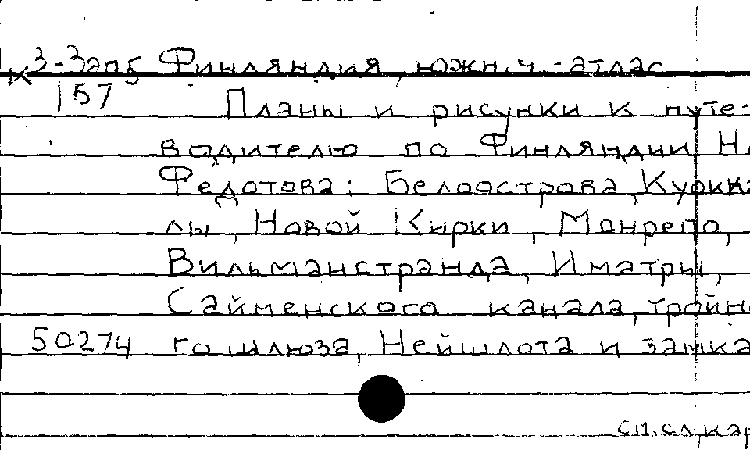 К 3-Зап6 Финляндия, южн.ч.-атлас
157 Планы и рисунки к путе-
водителю по Финляндии Н.
Федотова: Белоострова, Куокка
лы, Новой Кирки, Монрепо,
Вильманстранда, Иматры,
Сайменского канала, тройно
50274 го шлюза, Нейшлота и замка
см.сл.кар